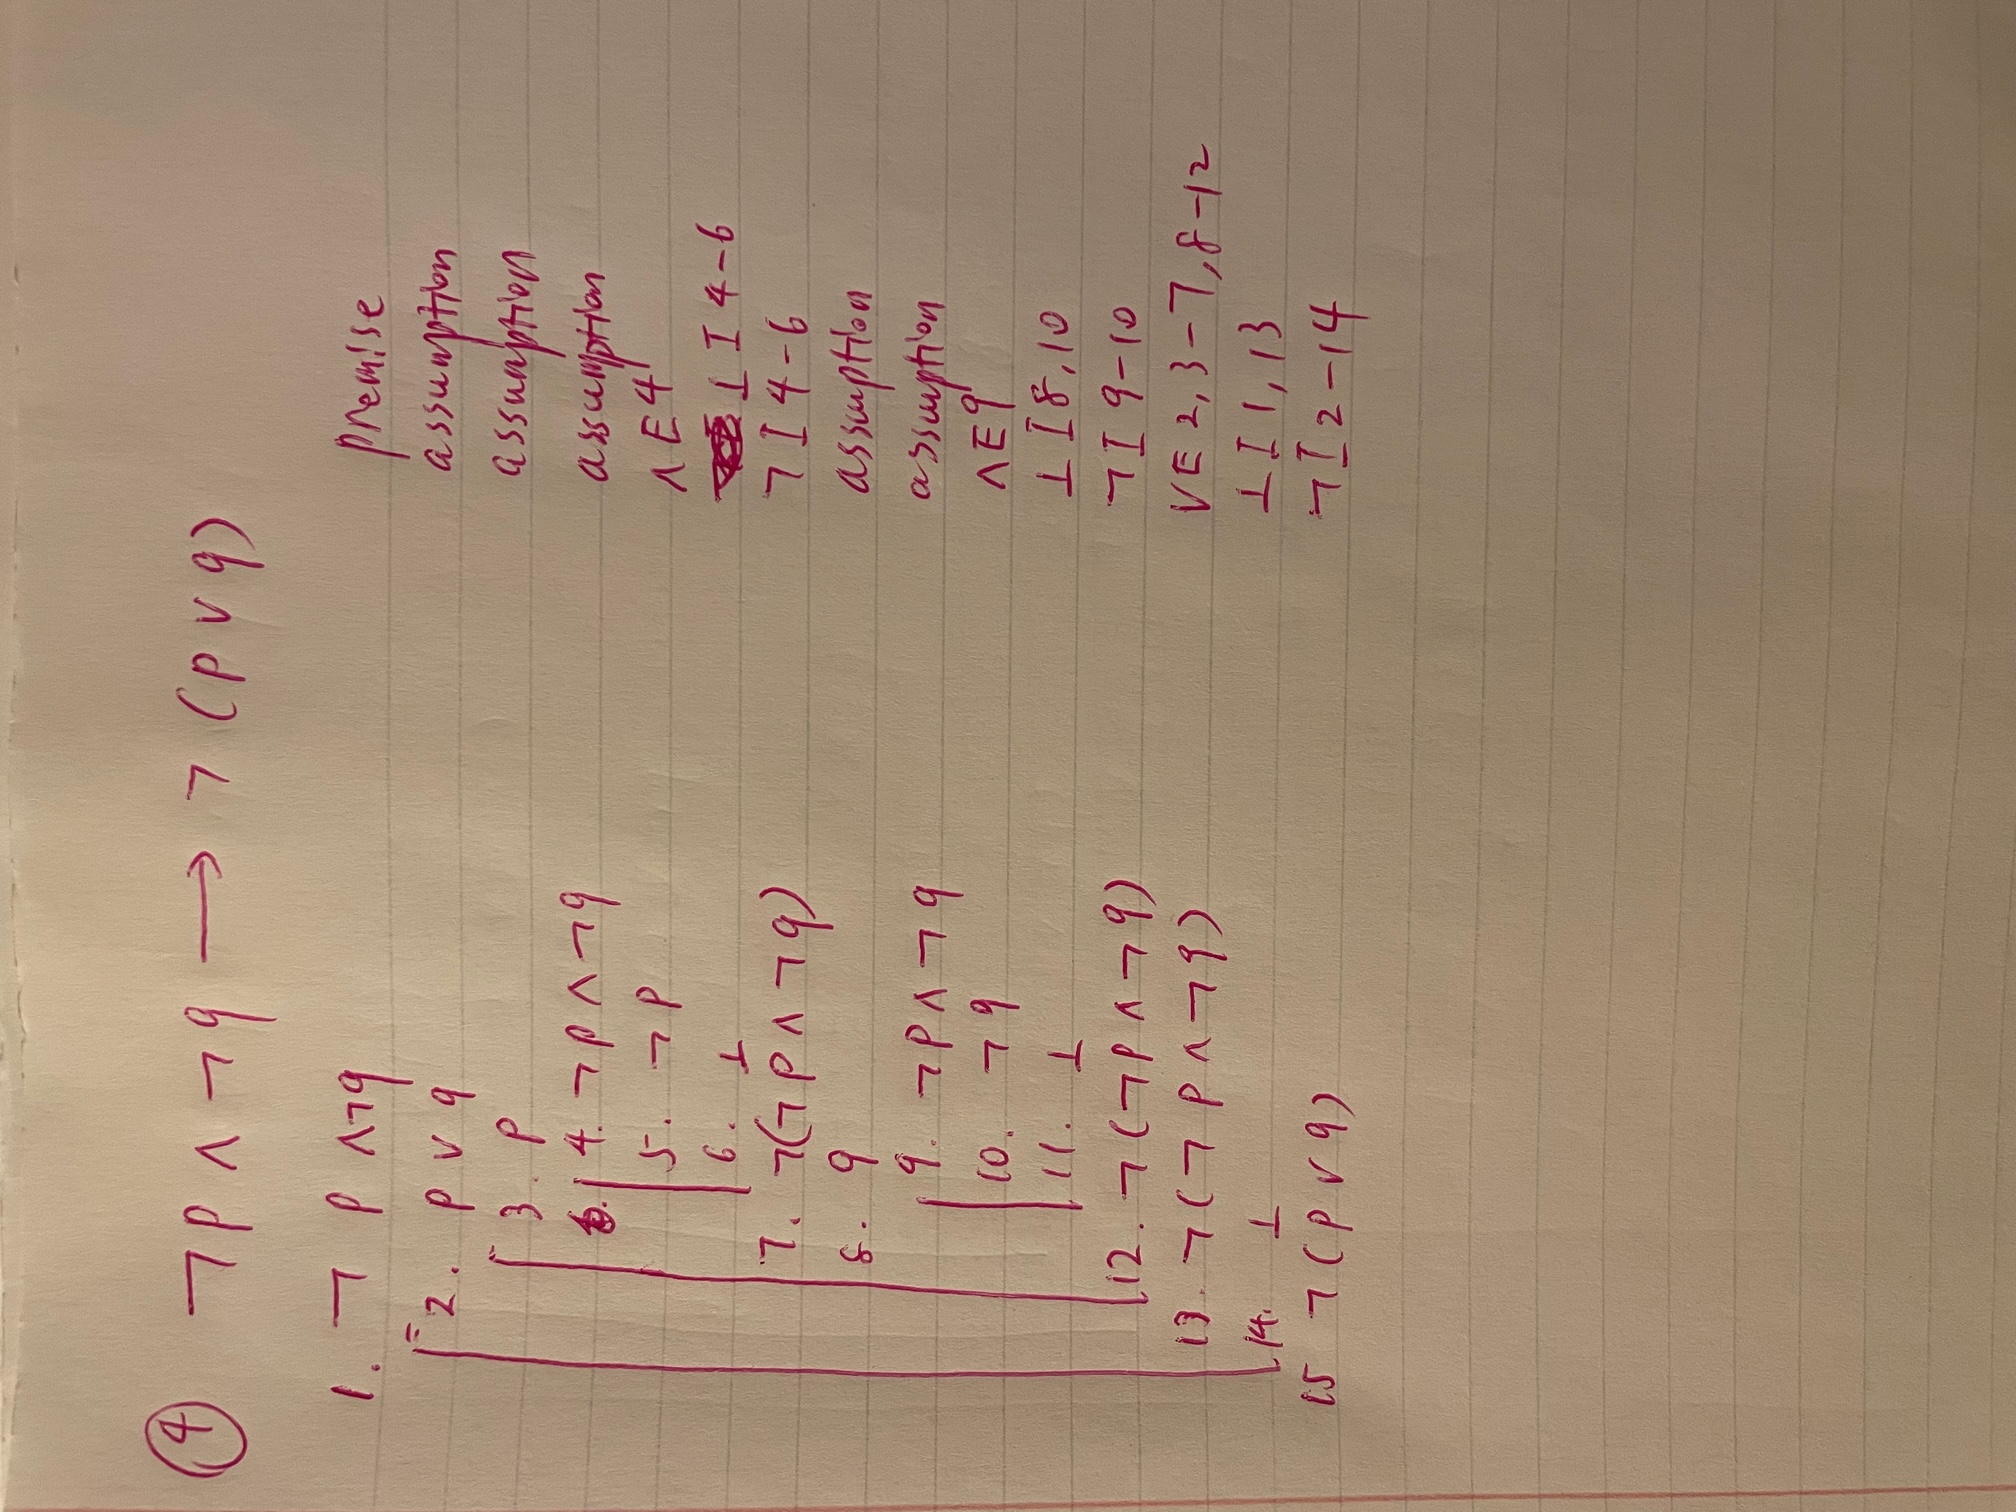 4 ¬p ∧ ¬q → ¬(p ∨ q)
1. ¬ p ∧ ¬q premise
2. p ∨ q assumption
3. p assumption
4. ¬p ∧ ¬q assumption
5. ¬p ∧E4
6. ⊥ ⊥I 4-6
7. ¬(¬p ∧ ¬q) ¬I 4-6
8. q assumption
9. ¬p ∧ ¬q assumption
10. ¬q ∧E9
11. ⊥ ⊥I8,10
12. ¬(¬p ∧ ¬q) ¬I 9-10
13. ¬(¬p ∧ ¬q) ∨E 2,3-7,8-12
14. ⊥ ⊥I1,13
15 ¬(p ∨ q) ¬I2-14